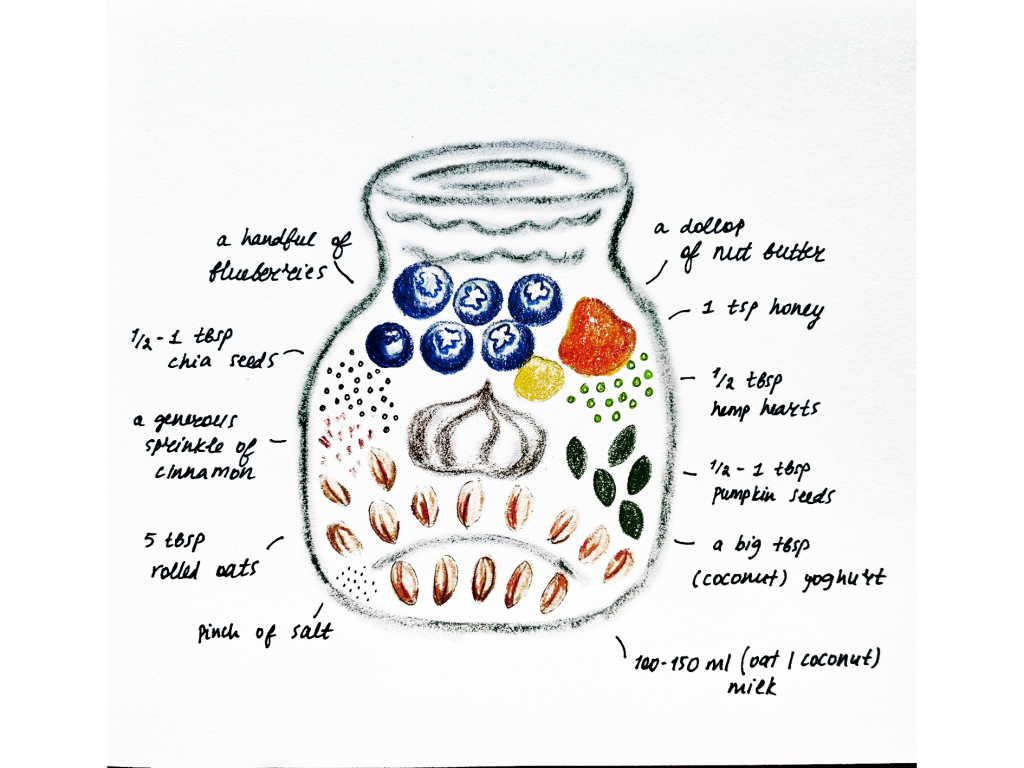 a handful of
blueberries
1/2 - 1 tbsp
chia seeds
a generous
sprinkle of
cinnamon
5 tbsp
rolled oats
pinch of salt
a dollop
of nut butter
1 tsp honey
1/2 tbsp
hemp hearts
1/2 - 1 tbsp
pumpkin seeds
a big tbsp
(coconut) yoghurt
100-150 ml (oat / coconut)
milk